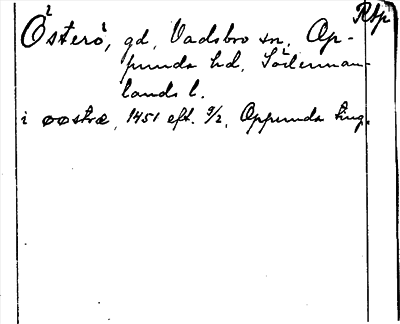 Rtp
Österö, gd, Vadsbro sn, Op-
punda hd, Söderman-
lands l.
i øøstræ, 1451 eft. 9/2, Oppunda ting.